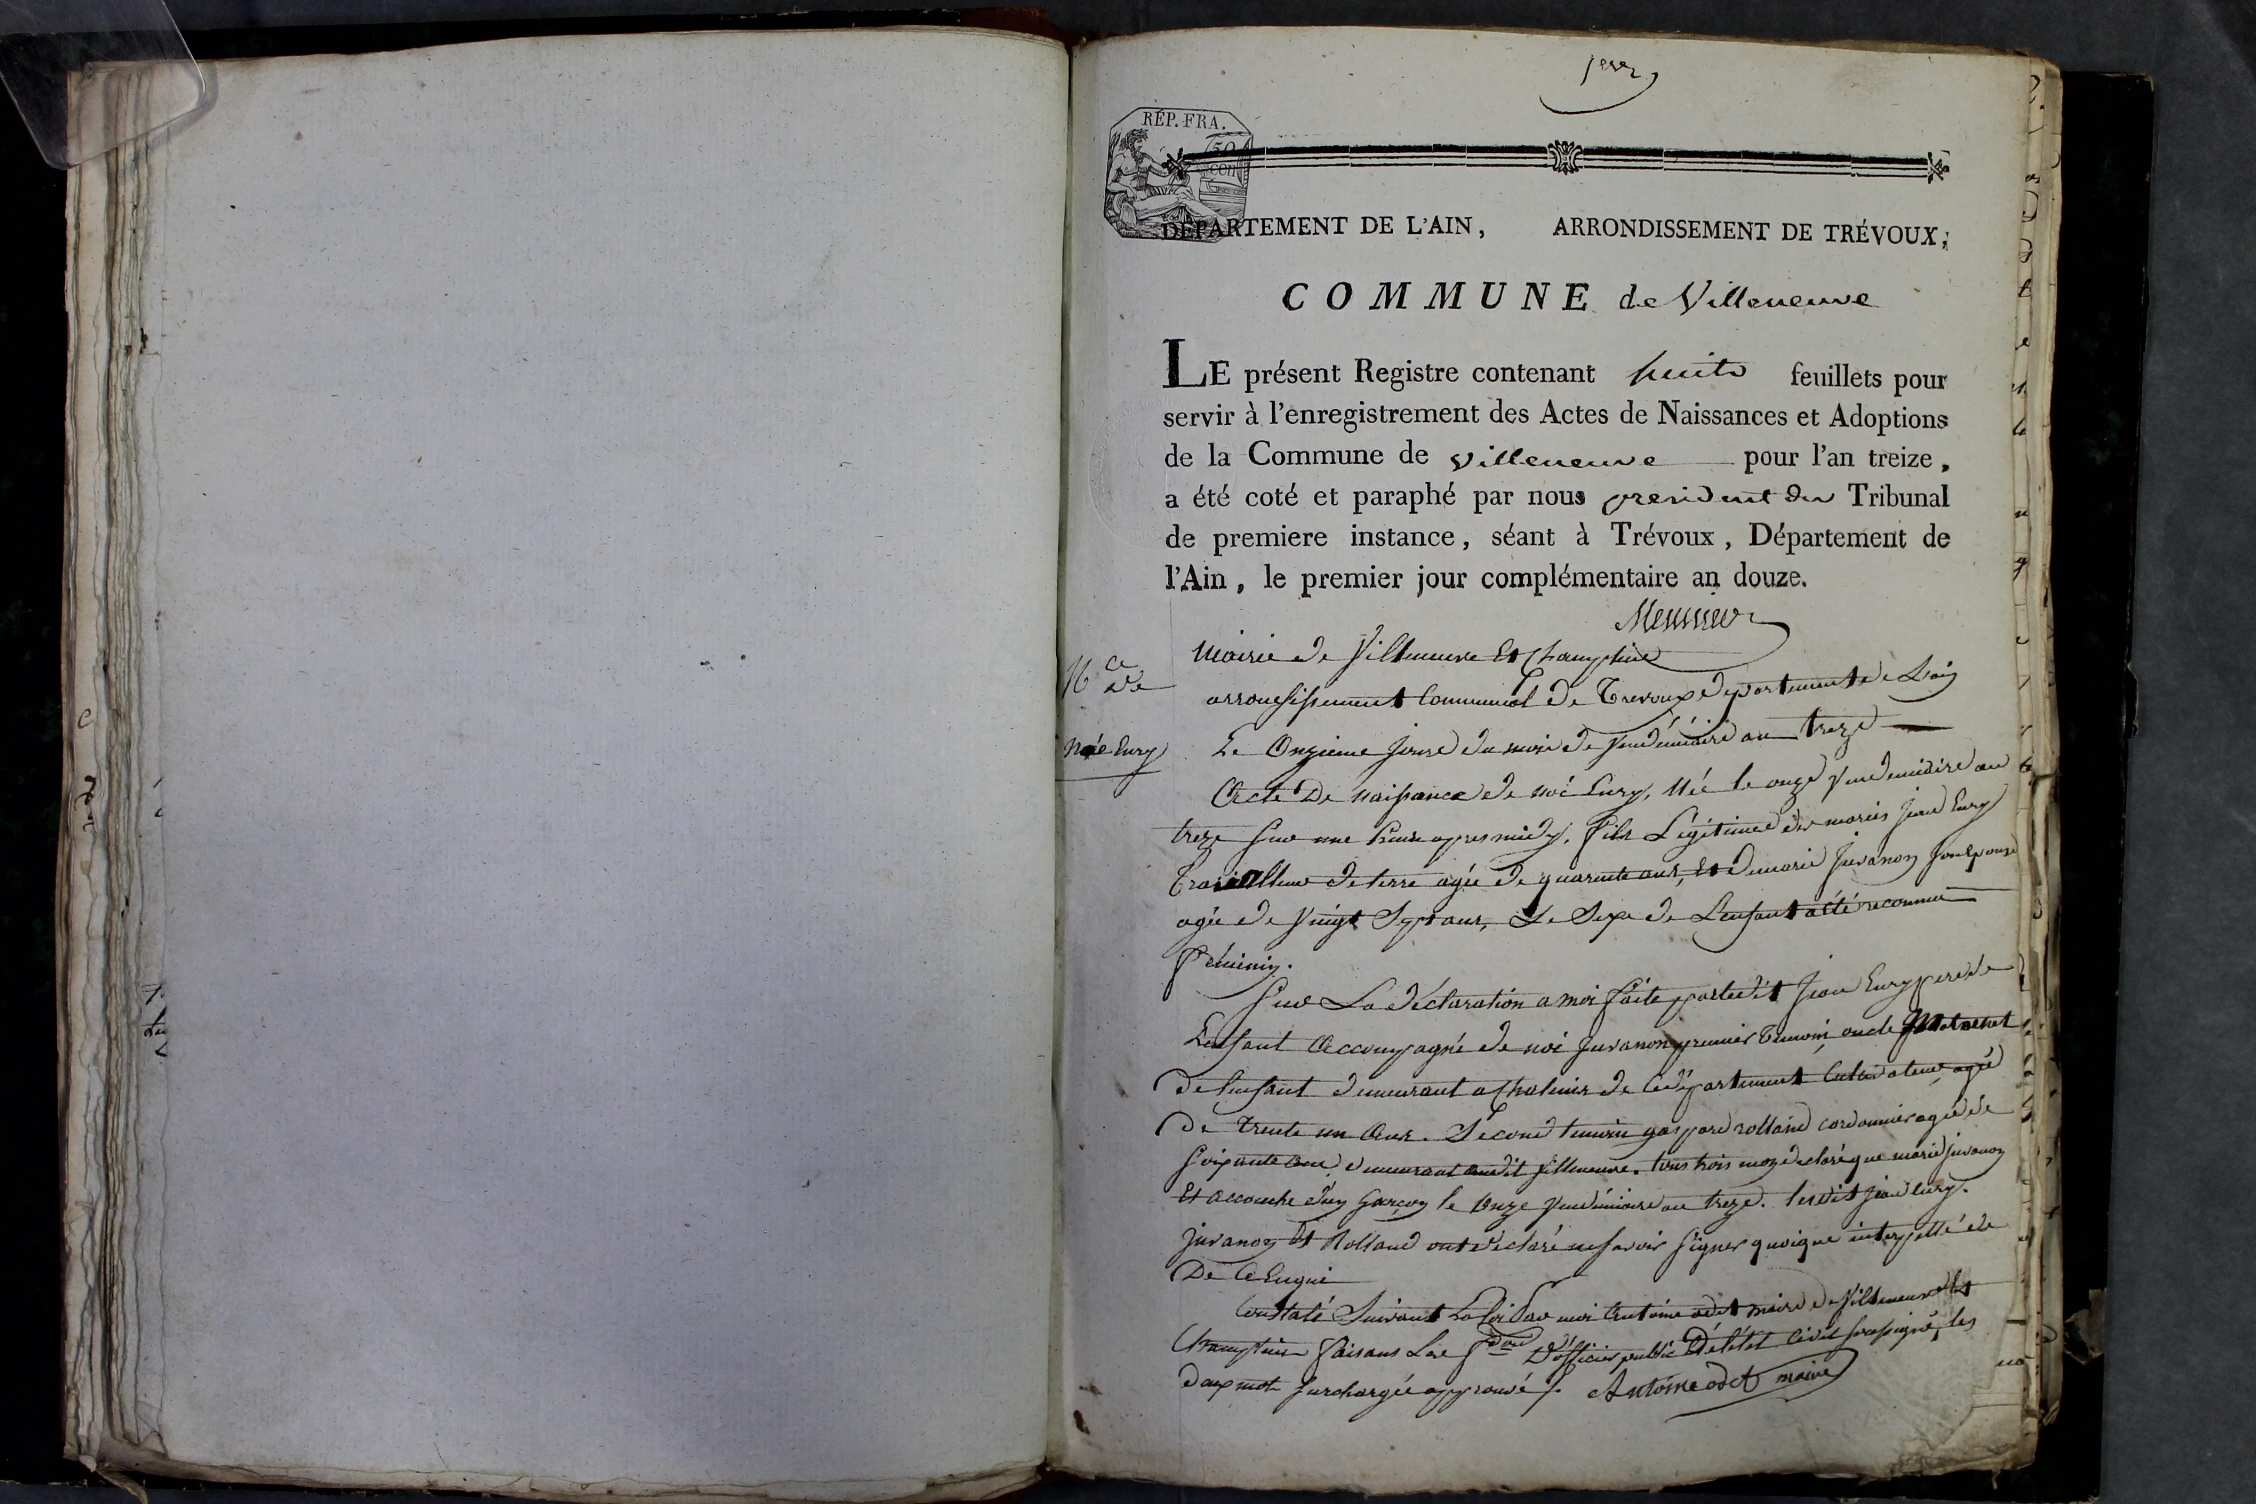 1er
RÉP. FRA.
50
cen
DÉPARTEMENT DE L'AIN, ARRONDISSEMENT DE TRÉVOUX,
COMMUNE de Villeneuve
LE présent Registre contenant huit feuillets pour
servir à l'enregistrement des Actes de Naissances et Adoptions
de la Commune de Villeneuve pour l'an treize,
a été coté et paraphé par nous president du Tribunal
de premiere instance, séant à Trévoux, Département de
l'Ain, le premier jour complémentaire an douze.
Mairie de Villeneuve Et Champtein
arrondissement Communal de Trevoux departement de L'ain
Nce
de
Noé Eury
Le Onzieme Jour du mois de Vendémiaire an treze
Acte De naissance de noé Eury, Né le onze Vendemiaire an
treze sur une heure apres midy, fils Légitime des mariés Jean Eury
Travailleur de terre agée de quarente ans, Et de marie Juvanon son Epouse
agée de Vingt Sept ans, Le Sexe de L'enfant a été reconnu
féminin.
Sur La déclaration a moi faite par ledit Jean Eury pere de
L'enfant Accompagné de noé Juvanon premier Temoin, oncle Maternel
de l'enfant demeurant a Chaleins de ce département Cultivateur, agé
De trente un Ans. Second temoin gaspard rolland cordonnier agé de
soixante ans demeurant audit Villeneuve. tous trois mon declaré que marie Juvanon
Et accouche d'un Garçon le Onze Vendémiaire an treze. lesdit Jean Eury.
Juvanon Et Rolland ont declaré ne savoir signer quoique interpellé de
De Ce Enqui
Constaté Suivant La loi Par moi Antoine odet maire de Villeneuve Et
Champtein faisans Les fons D'officier public De l'état Civil soussigné, les
deux mots surchargée approuvé /. Antoine odet maire